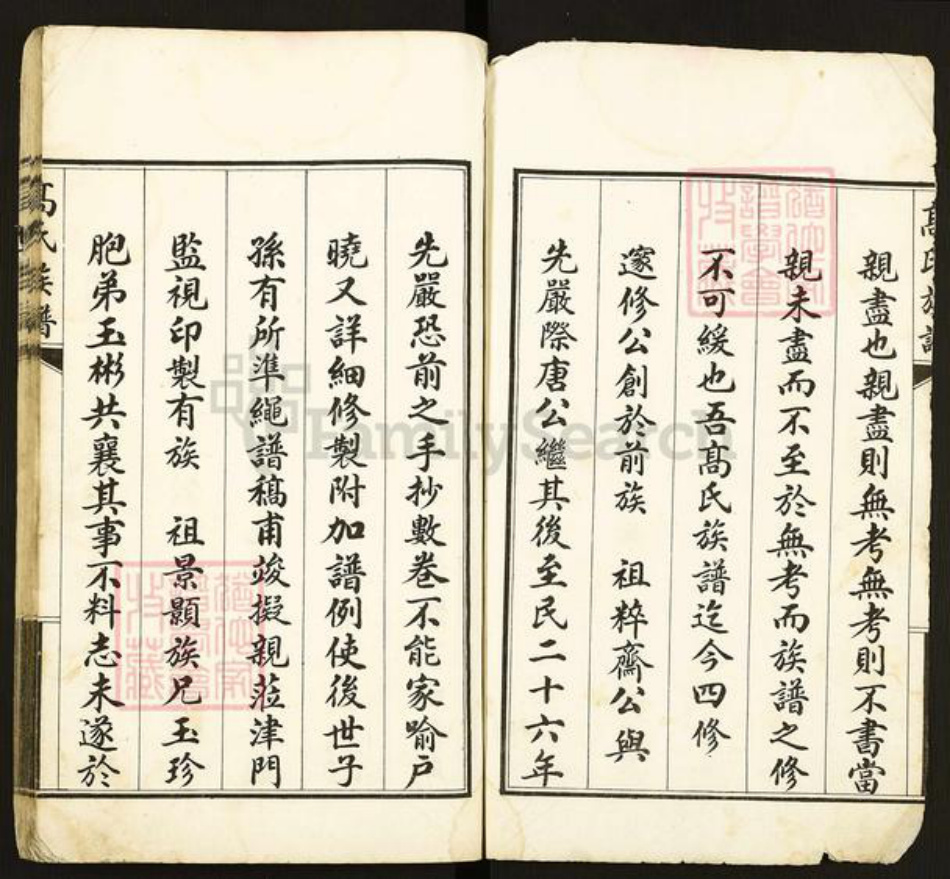 親盡也親盡則無考無考則不書當
親未盡而不至於無考而族譜之修
不可緩也吾髙氏族譜迄今四修
邃修公創於前族　祖粹齋公與
先嚴際唐公繼其後至民二十六年
先嚴恐前之手抄數卷不能家喻戶
曉又詳細修製附加譜例使後世子
孫有所準繩譜稿甫竣擬親蒞津門
監視印製有族　祖景顥族兄玉珍
胞弟玉彬共襄其事不料志未遂於
髙氏族譜
髙氏族譜
FamilySearch